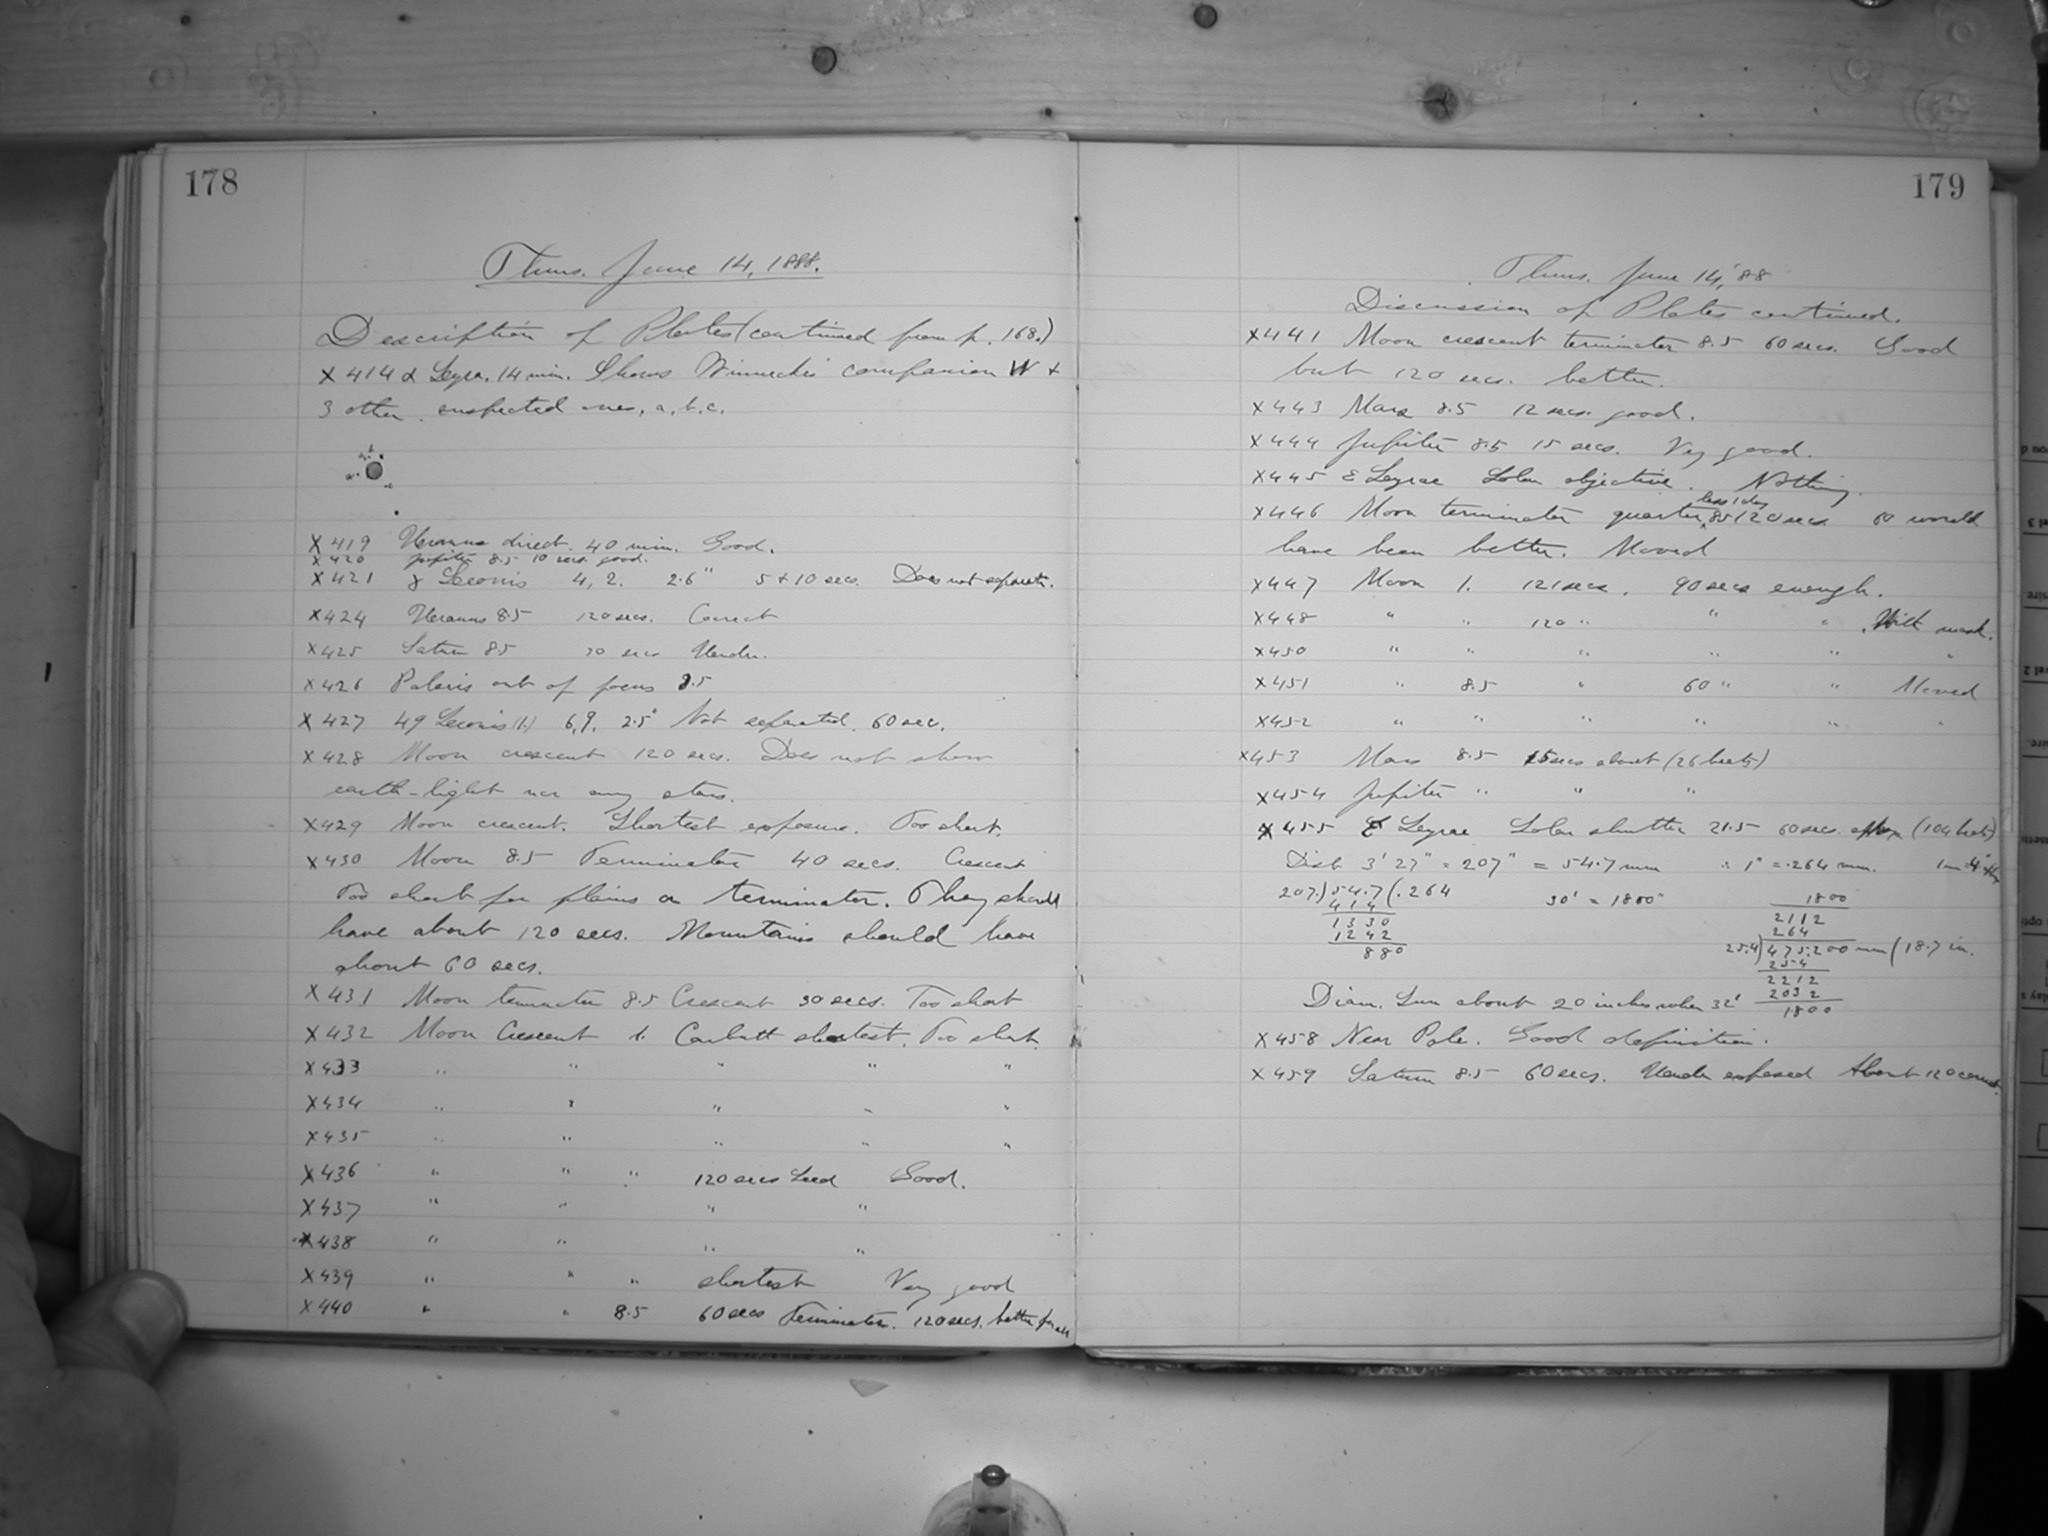 178
Thurs. June 14, 1888.
Description of Plates (continued from p. 168.)
X414 α Lyrae. 14 min. Shows Winnecke's companion W +
3 other suspected ones, a, b, c.
X419 Uranus direct. 40 min. Good.
X420 Jupiter 8.5 10 secs. good.
X421 γ Leonis 4, 2. 2.6" 5 + 10 secs. Does not separate.
X424 Uranus 8.5 120 secs. Correct
X425 Saturn 8.5 30 secs Under.
X426 Polaris out of focus 8.5
X427 49 Leonis (1.) 6, 9. 2.5" Not separated. 60 sec.
X428 Moon crescent 120 secs. Does not show
earth-light nor any stars.
X429 Moon crescent. Shortest exposure. Too short.
X430 Moon 8.5 Terminator 40 secs. Crescent
Too short for plains on terminator. They should
have about 120 secs. Mountains should have
about 60 secs.
X431 Moon terminator 8.5 Crescent 30 secs. Too short
X432 Moon Crescent 1. Carbutt shortest. Too short.
X433 " " " " "
X434 " " " " "
X435 " " " " "
X436 " " " 120 secs Seed Good.
X437 " " " "
X438 " " " "
X439 " " " shortest Very good
X440 " " 8.5 60 secs Terminator. 120 secs. better for
179
Thurs. June 14, '88
Discussion of Plates continued.
X441 Moon crescent terminator 8.5 60 secs. Good
but 120 secs. better.
X443 Mars 8.5 12 secs. good.
X444 Jupiter 8.5 15 secs. Very good.
X445 ε Lyrae Solar objective. Nothing.
less 1 day
X446 Moon terminator quarter 8.5 120 secs 60 would
have been better. Moved
X447 Moon 1. 121 secs. 90 secs enough.
X448 " " 120 " " " With mask.
X450 " " " " " "
X451 " 8.5 " 60 " " Moved
X452 " " " " " "
X453 Mars 8.5 15 secs about (26 beats)
X454 Jupiter " " "
X455 ε Lyrae Solar shutter 21.5 60 secs. (104 beats)
Dist 3' 27" = 207" = 54.7 mm ∴ 1" = .264 mm.
207.)54.7(.264 30' = 1800" 1800
414 2112
1330 264
1242 25.4)475.200 mm (18.7 in.
880 254
2212
2032
Diam. Sun about 20 inches when 32' 1800
X458 Near Pole. Good definition.
X459 Saturn 8.5 60 secs. Under exposed About 120 correct.